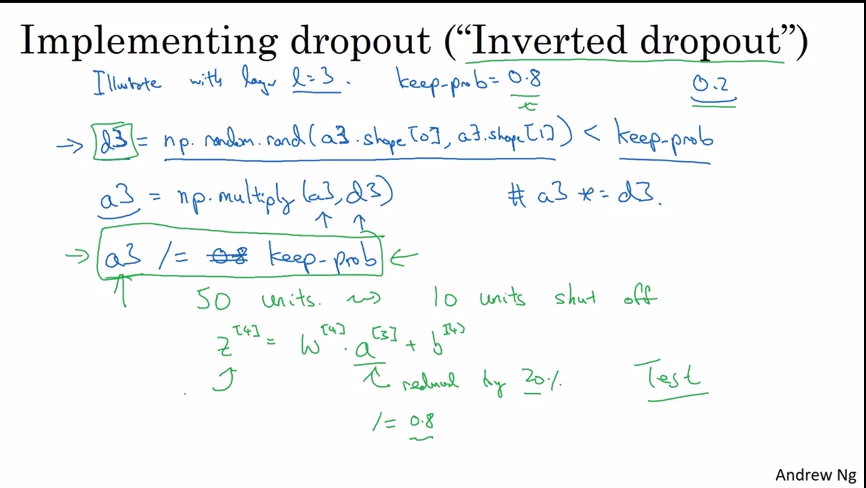 Implementing dropout (“Inverted dropout”)
Illustrate with layer l=3. keep-prob = 0.8 0.2
x
→ d3 = np.random.rand(a3.shape[0], a3.shape[1]) < keep-prob
a3 = np.multiply(a3, d3) # a3 *= d3.
→ a3 /= 0.8 keep-prob ←
50 units. ⇝ 10 units shut off
z^[4] = W^[4] · a^[3] + b^[4]
reduced by 20%. Test
/= 0.8
Andrew Ng